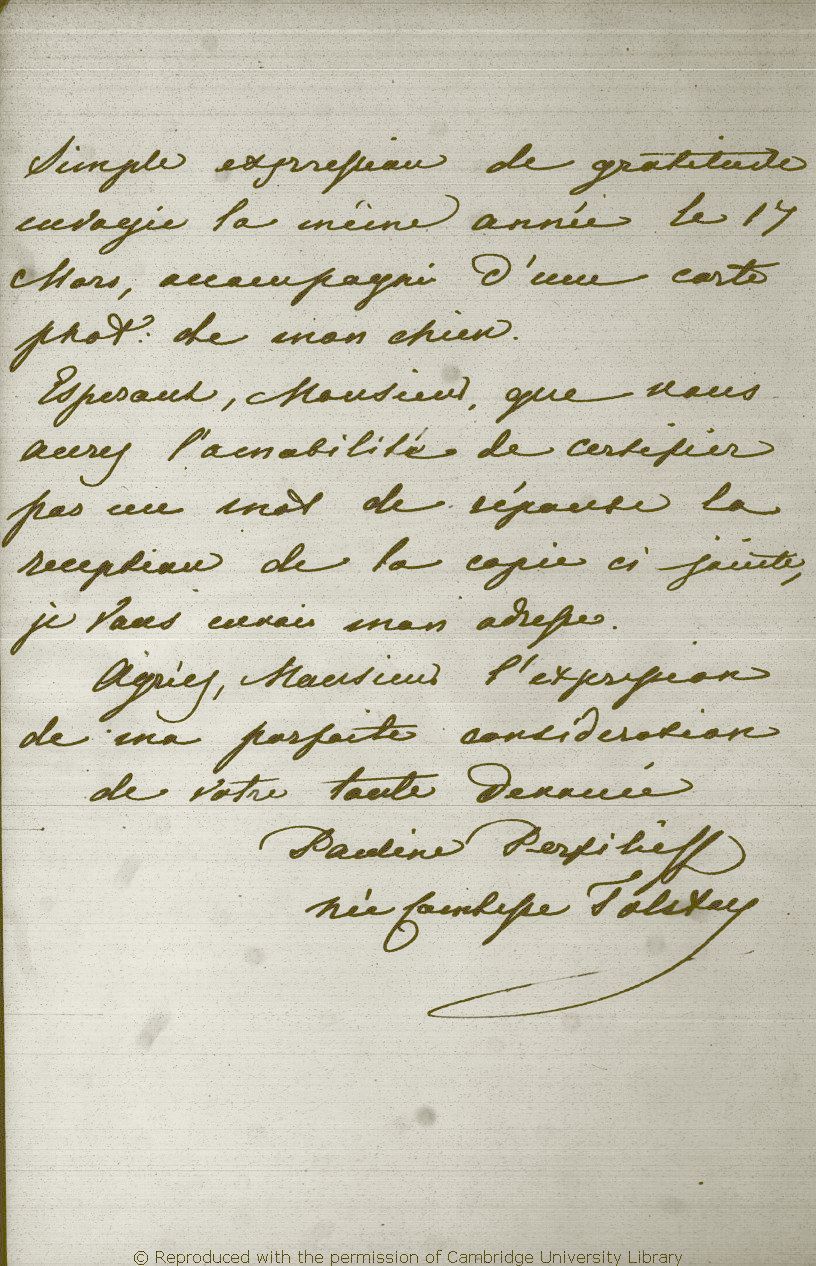 Simple expression de gratitude
envoyée la même année le 17
Mars, accompagné d'une carte
phot: de mon chien.
Esperant, Monsieur, que vous
aurez l'amabilité de certifier
par un mot de réponse la
reception de la copie ci jointe,
je Vous envoie mon adresse.
Agriéz, Monsieur l'expression
de ma parfaite consideration
de votre toute Devouée
Pauline Perfilieff
née Comtesse Tolstoy
© Reproduced with the permission of Cambridge University Library